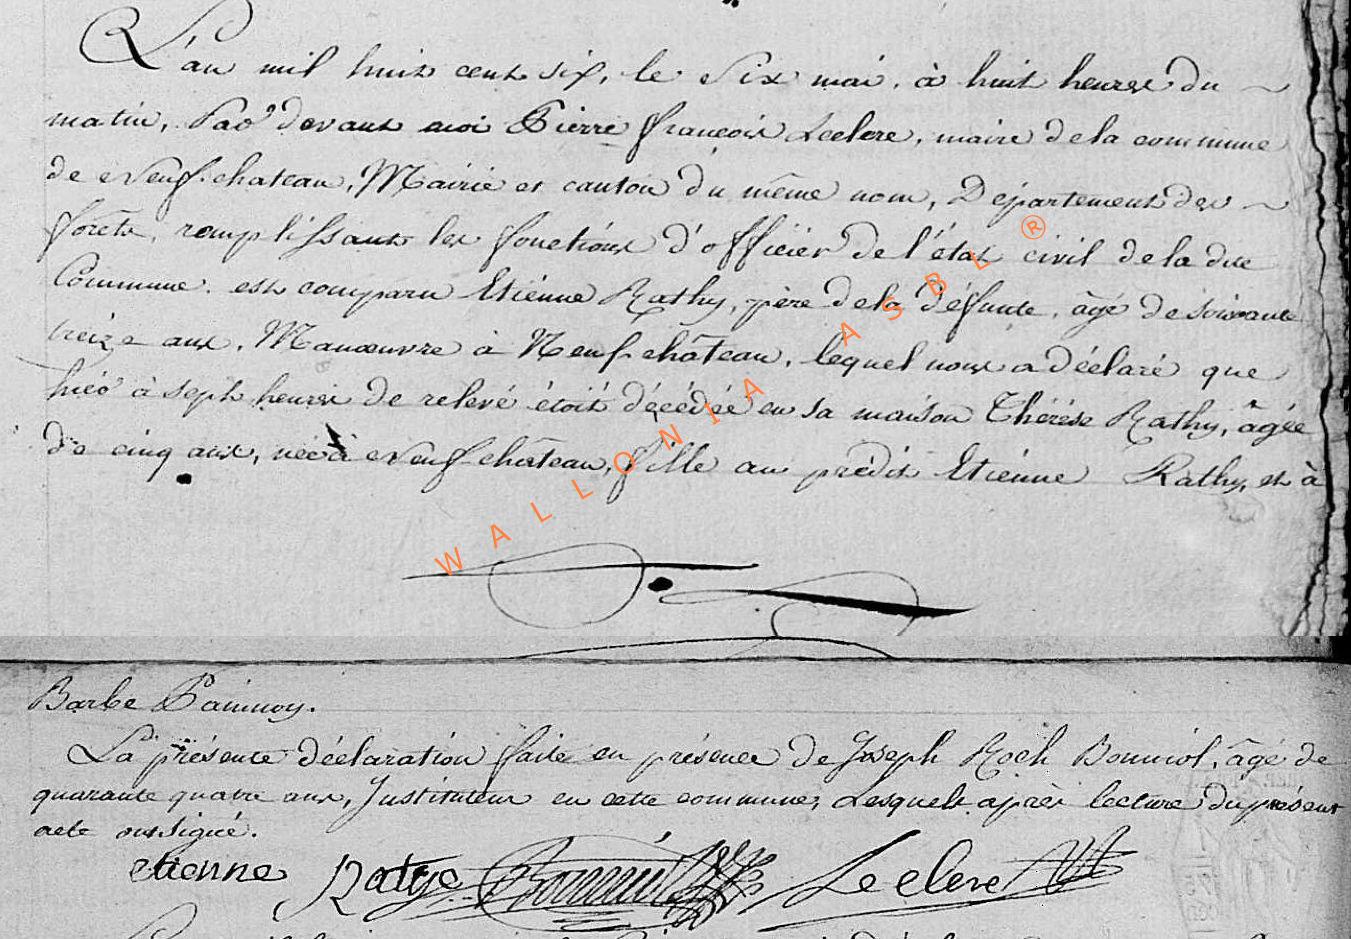 L'an mil huit cent six, le Six mai, à huit heures du ~
matin, Pard devant moi Pierre françois Leclere, maire de la commune
de Neuf-chateau, Mairie et canton du même nom, Département des ~
forêts, remplissant les fonctions d'officier de l'état civil de la dite
Commune. est comparu Etienne Rathy, père de la défunte, âgé de soixante
treize ans, Manœuvre à Neuf-château, lequel nous a déclaré que
hier à sept heures de relevé étoit décédée en sa maison Thérèse Rathy, âgée
de cinq ans, née à Neuf-château, fille au prédit Etienne Rathy, et à
WALLONIA ASBL ®
Barbe
La présente déclaration faite en présence de Joseph Roch Bonmiol, âgé de
quarante quatre ans, Instituteur en cette commune, Lesquels après lecture du présent
acte ont signé.
etienne Ratye Leclere